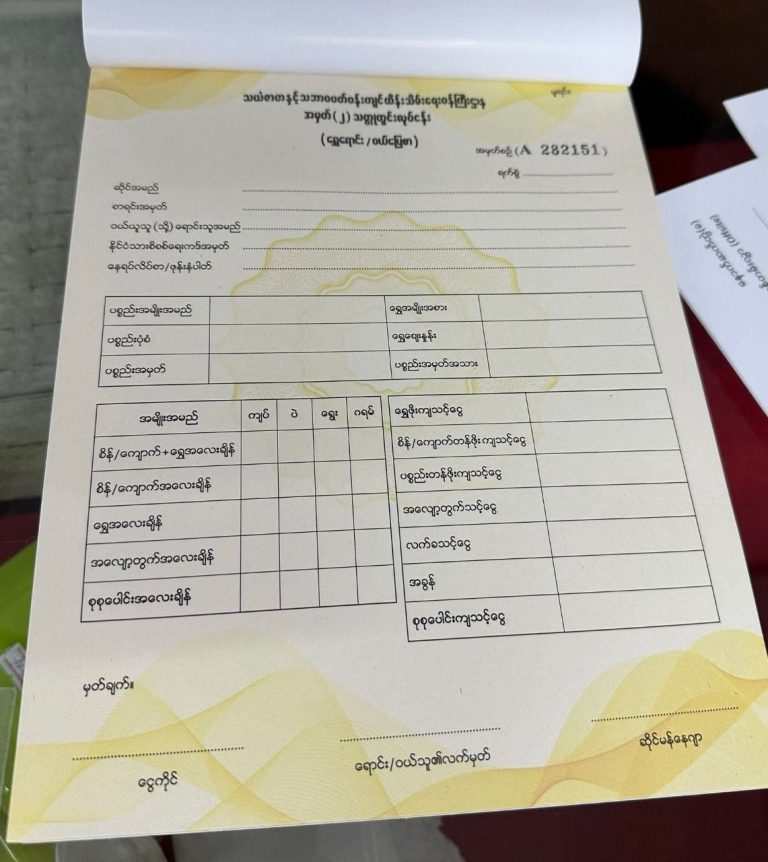 မူရင်း
သယံဇာတနှင့်သဘာဝပတ်ဝန်းကျင်ထိန်းသိမ်းရေးဝန်ကြီးဌာန
အမှတ်(၂)သတ္တုတွင်းလုပ်ငန်း
(ရွှေရောင်း/ဝယ်ပြေစာ)
အမှတ်စဉ်(A 282151)
ရက်စွဲ
ဆိုင်အမည်
စာရင်းအမှတ်
ဝယ်ယူသူ(သို့)ရောင်းသူအမည်
နိုင်ငံသားစိစစ်ရေးကဒ်အမှတ်
နေရပ်လိပ်စာ/ဖုန်းနံပါတ်
ပစ္စည်းအမျိုးအမည် ရွှေအမျိုးအစား
ပစ္စည်းပုံစံ ရွှေဈေးနှုန်း
ပစ္စည်းအမှတ် ပစ္စည်းအမှတ်အသား
အမျိုးအမည် ကျပ် ပဲ ရွေး ဂရမ်
စိန်/ကျောက်+ရွှေအလေးချိန်
စိန်/ကျောက်အလေးချိန်
ရွှေအလေးချိန်
အလျော့တွက်အလေးချိန်
စုစုပေါင်းအလေးချိန်
ရွှေဖိုးကျသင့်ငွေ
စိန်/ကျောက်တန်ဖိုးကျသင့်ငွေ
ပစ္စည်းတန်ဖိုးကျသင့်ငွေ
အလျော့တွက်သင့်ငွေ
လက်ခသင့်ငွေ
အခွန်
စုစုပေါင်းကျသင့်ငွေ
မှတ်ချက်။
ငွေကိုင်
ရောင်း/ဝယ်သူ၏လက်မှတ်
ဆိုင်မန်နေဂျာ